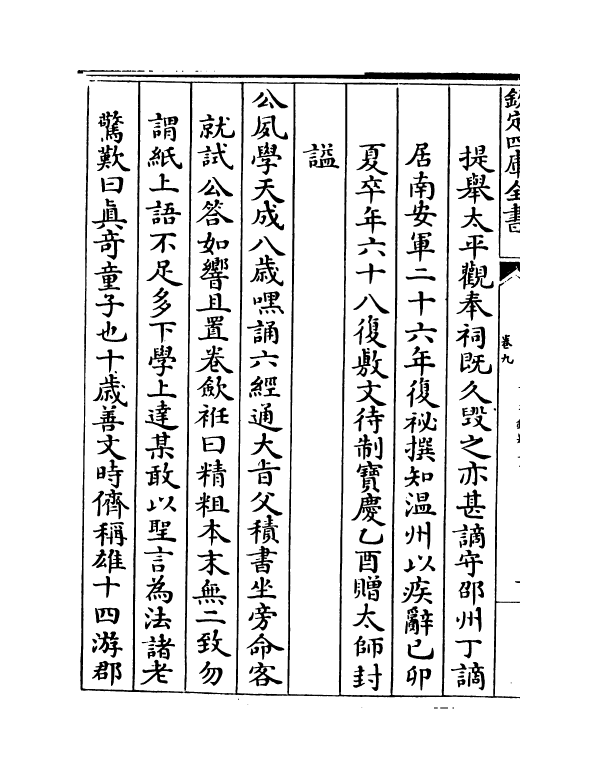 欽定四庫全書
卷九
提舉太平觀奉祠既久毀之亦甚謫守邵州丁謫
居南安軍二十六年復祕撰知温州以疾辭已卯
夏卒年六十八復敷文待制寶慶乙酉贈太師封
謚
公夙學天成八歲嘿誦六經通大旨父積書坐旁命客
就試公答如響且置卷斂袵曰精粗本末無二致勿
謂紙上語不足多下學上達某敢以聖言為法諸老
驚歎曰眞奇童子也十歲善文時儕稱雄十四游郡